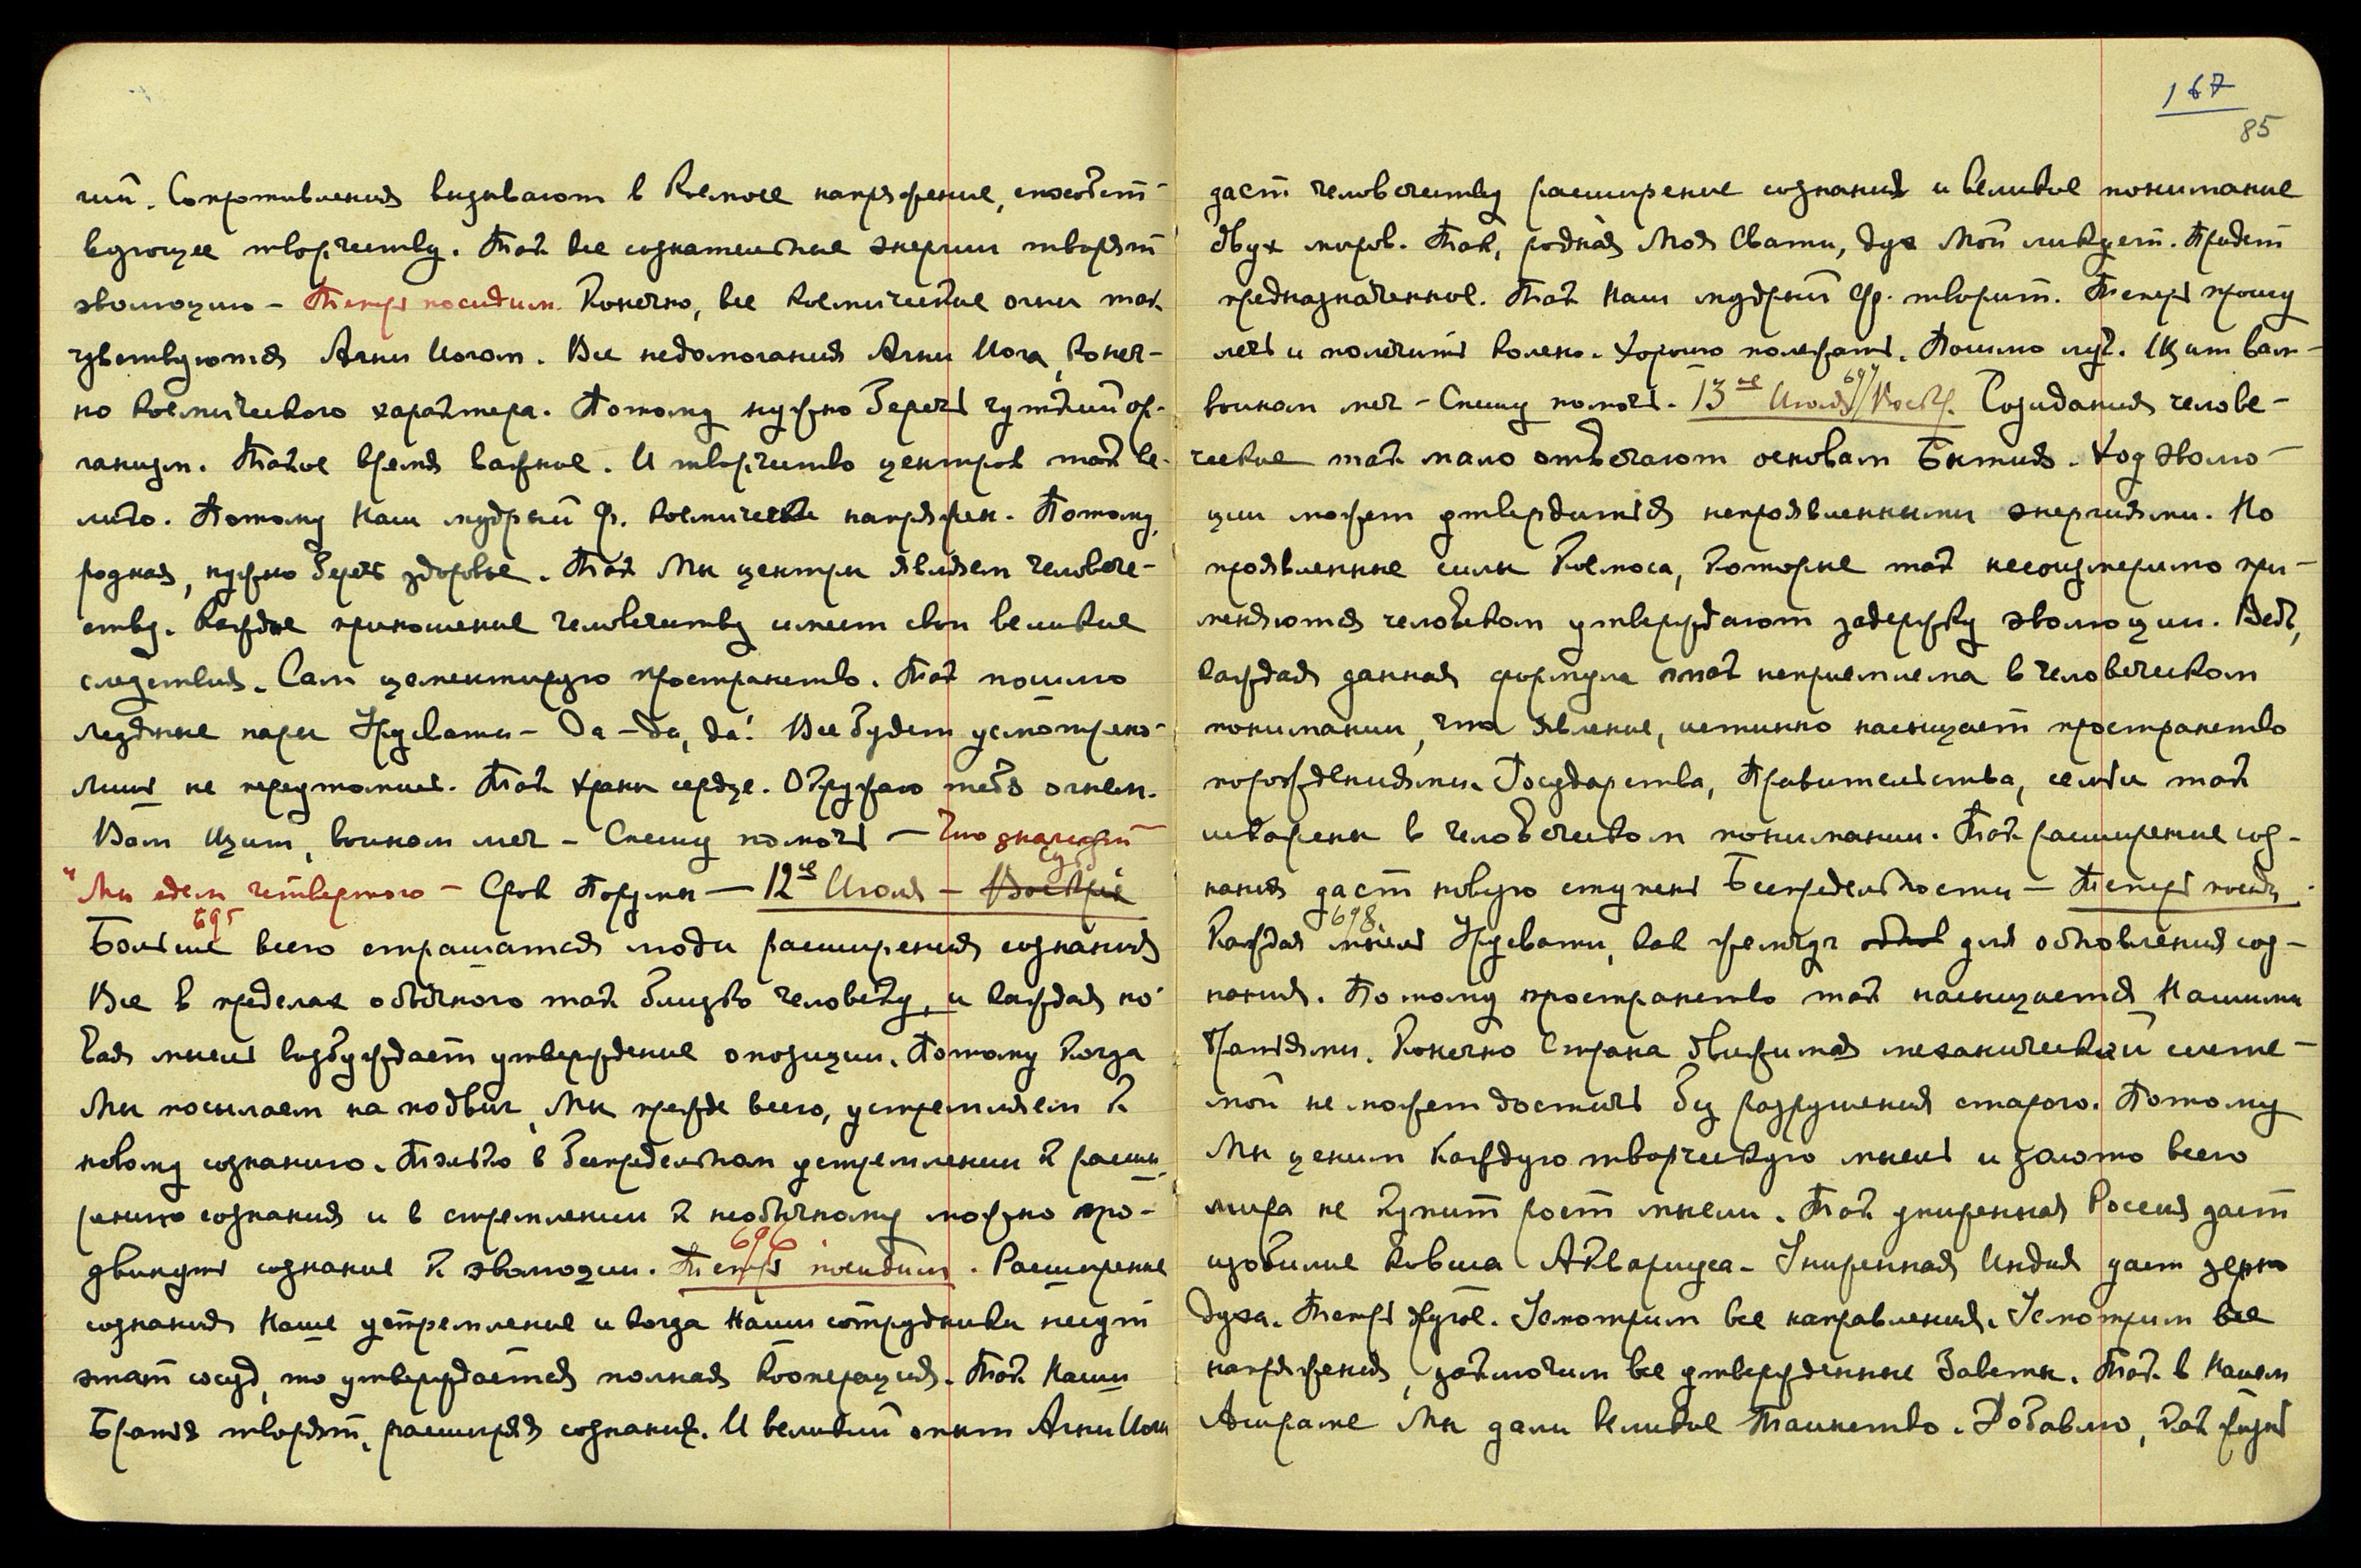 гий. Сопротивления вызывают в Космосе напряжение, способст-
вующее творчеству. Так все сознательные энергии творят
эволюцию – Теперь посидим. Конечно, все космические огни так
чувствуются Агни Йогом. Все недомогания Агни Йога, конеч-
но космического характера. Потому нужно беречь чуткий ор-
ганизм. Такое время важное. И творчество центров так ве-
лико. Потому Наш мудрый Ф. космически напряжен. Потому,
родная, нужно беречь здоровье. Так Мы центры являем человече-
ству. Каждое приношение человечеству имеет свои великие
следствия. Сам цементирую пространство. Так пошлю
Урусвати – Да – да, да! Все будет усмотрено –
лишь не переутомись. Так храни сердце. Окружаю тебя огнем.
Вам щит, воинам меч – Спешу помочь – Что значит
"Мы едем четвертого – Срок Порумы — 12ое Июля –
695
Больше всего страшатся люди расширения сознания
Все в пределах обычного так близко человеку, и каждая но-
вая мысль возбуждает утверждение опозиции. Потому когда
Мы посылаем на подвиг, Мы прежде всего, устремляем к
новому сознанию. Только в беспредельном устремлении к расши-
рению сознания и в стремлении к необычному можно про-
696
двинуть сознание к эволюции. Теперь посидим. Расширение
сознания Наше устремление и когда Наши сотрудники несут
этот сосуд, то утверждается полная кооперация. Так Наши
Братья творят, расширяя сознания. И великий опыт Агни Йоги
167
85
даст человечеству расширение сознания и великое понимание
двух миров. Так, родная Моя Свати, дух Мой ликует. Придет
предназначенное. Так Наш мудрый Ф. творит. Теперь прошу
лечь и полечить колено. Хорошо полежать. Пошлю луч. Щит вам –
697
воинам меч – Спешу помочь. 13ое Июля/Воскр. Созидания челове-
ческие так мало отвечают основам Бытия. Ход эволю-
ции может утвердиться непроявленными энергиями. Но
проявленные силы Космоса, которые так несоизмеримо при-
меняются человеком утверждают задержку эволюции. Ведь,
каждая данная формула так неприемлема в человеческом
понимании, что явление, истинно насыщает пространство
порождениями. Государства, Правительства, семьи так
искажены в человеческом понимании. Так расширение соз-
нания даст новую ступень Беспредельности – Теперь посид.
698
Каждая мысль Урусвати, как жемчуг для обновления соз-
нания. Потому пространство так насыщается Нашими
Братьями. Конечно Страна движимая механической систе-
мой не может достичь без разрушения старого. Потому
Мы ценим каждую творческую мысль и золото всего
мира не купит рост мысли. Так униженная Россия даст
изобилие ковша Аквариуса – Униженная Индия даст зерно
духа. Теперь другое. Усмотрим все направления. Усмотрим все
напряжения, заключим все утвержденные Заветы. Так в Нашем
Ашраме Мы дали великое Таинство. Добавлю, как жизнь